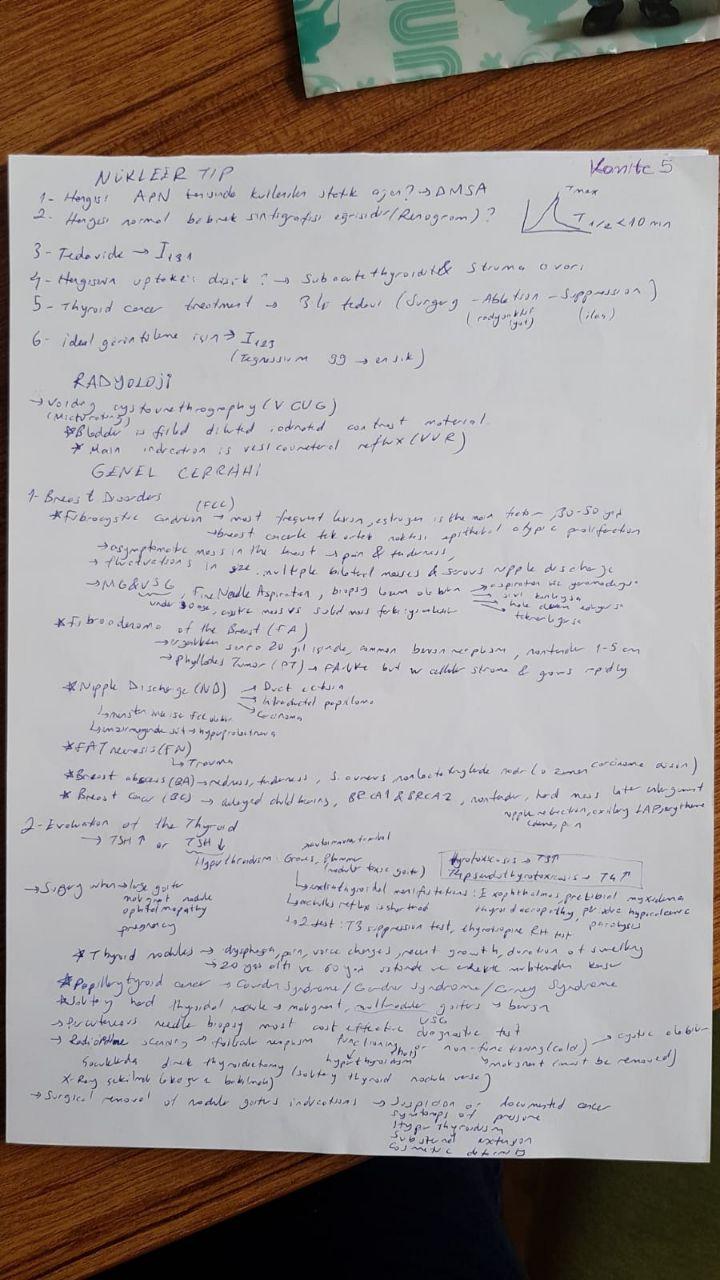 Komite 5
NÜKLEER TIP
1- Hangisi APN tanısında kullanılan statik ajan? → DMSA
2- Hangisi normal böbrek sintigrafisi eğrisidir (Renogram)?
Tmax
T 1/2 < 10 min
3- Tedavide → I131
4- Hangisinin uptake'i düşük? → Subacute thyroidit & Struma ovari
5- Thyroid cancer treatment → 3'lü tedavi (Surgery - Ablation - Suppression)
(radyoaktif iyot) (ilaç)
6- ideal görüntüleme için → I123
99 → en sık)
RADYOLOJİ
→ Voiding cystourethrography (VCUG)
(Micturating)
* Bladder is filled diluted iodinated contrast material.
* Main indication is vesicoureteral reflux (VUR)
GENEL CERRAHİ
1- Breast Disorders
(FCC)
* Fibrocystic condition → most frequent lesion, estrogen is the main factor, 30-50 yaş
→ breast cancerle tek ortak noktası epithelial atypic proliferation
→ asymptomatic mass in the breast → pain & tenderness,
→ fluctuations in size, multiple bilateral masses & serous nipple discharge
→ MG & USG, Fine Needle Aspiration, biopsy
under 30 age, cystic mass vs solid mass
* Fibroadenoma of the Breast (FA)
→ 20 yıl içinde, common benign neoplasm, nontender 1-5 cm
→ Phyllodes Tumor (PT) → FA like but w cellular stroma & grows rapidly
* Nipple Discharge (ND) → Duct ectasia
→ Intraductal papilloma
→ Carcinoma
* FAT necrosis (FN)
↳ Trauma
* Breast abscess (BA) → redness, tenderness, (o zaman carcinoma düşün)
* Breast Cancer (BC) → delayed childbearing, BRCA1 & BRCA2, nontender, hard mass later enlargement
nipple retraction, axillary LAP, erythema
edema, pain
2- Evaluation of the Thyroid
→ TSH ↑ or TSH ↓
Hyperthyroidism: Graves, Plummer
(nodular toxic goiter)
thyrotoxicosis → T3↑
→ T4 ↑
→ Surgery when → large goiter
malignant nodule
ophthalmopathy
pregnancy
↳ extrathyroidal manifestations: Exophthalmos, pretibial myxedema
thyroid acropathy, periodic hypocalcemic
paralysis
↳ achilles reflux is shortened
↳ 2 test: T3 suppression test, thyrotropine RH test
* Thyroid nodules → dysphagia, pain, voice changes, recent growth, duration of swelling
→ 20 yaş altı ve 60 yaş üstünde ve erkekte muhtemelen kanser
* Papillary thyroid cancer → Cowden Syndrome / Gardner Syndrome / Carney Syndrome
* Solitary hard thyroidal nodule → malignant, multinodular goiters → benign
→ Percutaneous needle biopsy most cost effective diagnostic test
USG
→ scanning → follicular neoplasm functioning (hot) or non-functioning (cold) → cystic olabilir
hyperthyroidism
→ malignant (must be removed)
Çocuklarda direk thyroidectomy (solitary thyroid nodule varsa)
→ Surgical removal of nodular goiters indications → Suspicion or documented cancer
symptoms of pressure
Hyperthyroidism
Substernal extension
Cosmetic